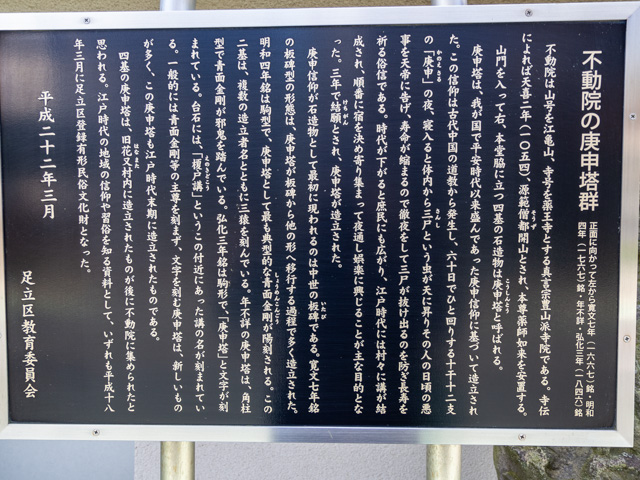 不動院の庚申塔群
正面に向かって左から寛文七年(一六六七)銘・明和
四年(一七六七)銘・年不詳・弘化三年(一八四六)銘
不動院は山号を江亀山、寺号を薬王寺とする真言宗豊山派寺院である。寺伝
によれば天喜二年(一〇五四)、源範僧都開山とされ、本尊薬師如来を安置する。
山門を入って右、本堂脇に立つ四基の石造物は庚申塔と呼ばれる。
庚申塔は、我が国で平安時代以来盛んであった庚申信仰に基づいて造立され
た。この信仰は古代中国の道教から発生し、六十日でひと回りする十干十二支
の「庚申」の夜、寝入ると体内から三尸という虫が天に昇りその人の日頃の悪
事を天帝に告げ、寿命が縮まるので徹夜をして三尸が抜け出るのを防ぎ長寿を
祈る俗信である。時代が下がると庶民にも広がり、江戸時代には村々に講が結
成され、順番に宿を決め寄り集まって夜通し娯楽に興じることが主な目的とな
った。三年で結願とされ、庚申塔が造立された。
庚申信仰が石造物として最初に現われるのは中世の板碑である。寛文七年銘
の板碑型の形態は、庚申塔が板碑から他の形へ移行する過程で多く造立された。
明和四年銘は駒型で、庚申塔として最も典型的な青面金剛が陽刻される。この
二基は、複数の造立者名とともに三猿を刻んでいる。年不詳の庚申塔は、角柱
型で青面金剛が邪鬼を踏んでいる。弘化三年銘は駒形で、「庚申塔」と文字が刻
まれている。台石には、「榎戸講」というこの付近にあった講の名が刻まれてい
る。一般的には青面金剛等の主尊を刻まず、文字を刻む庚申塔は、新しいもの
が多く、この庚申塔も江戸時代末期に造立されたものである。
四基の庚申塔は、旧花又村内に造立されたものが後に不動院に集められたと
思われる。江戸時代の地域の信仰や習俗を知る資料として、いずれも平成十八
年三月に足立区登録有形民俗文化財となった。
平成二十二年三月
足立区教育委員会